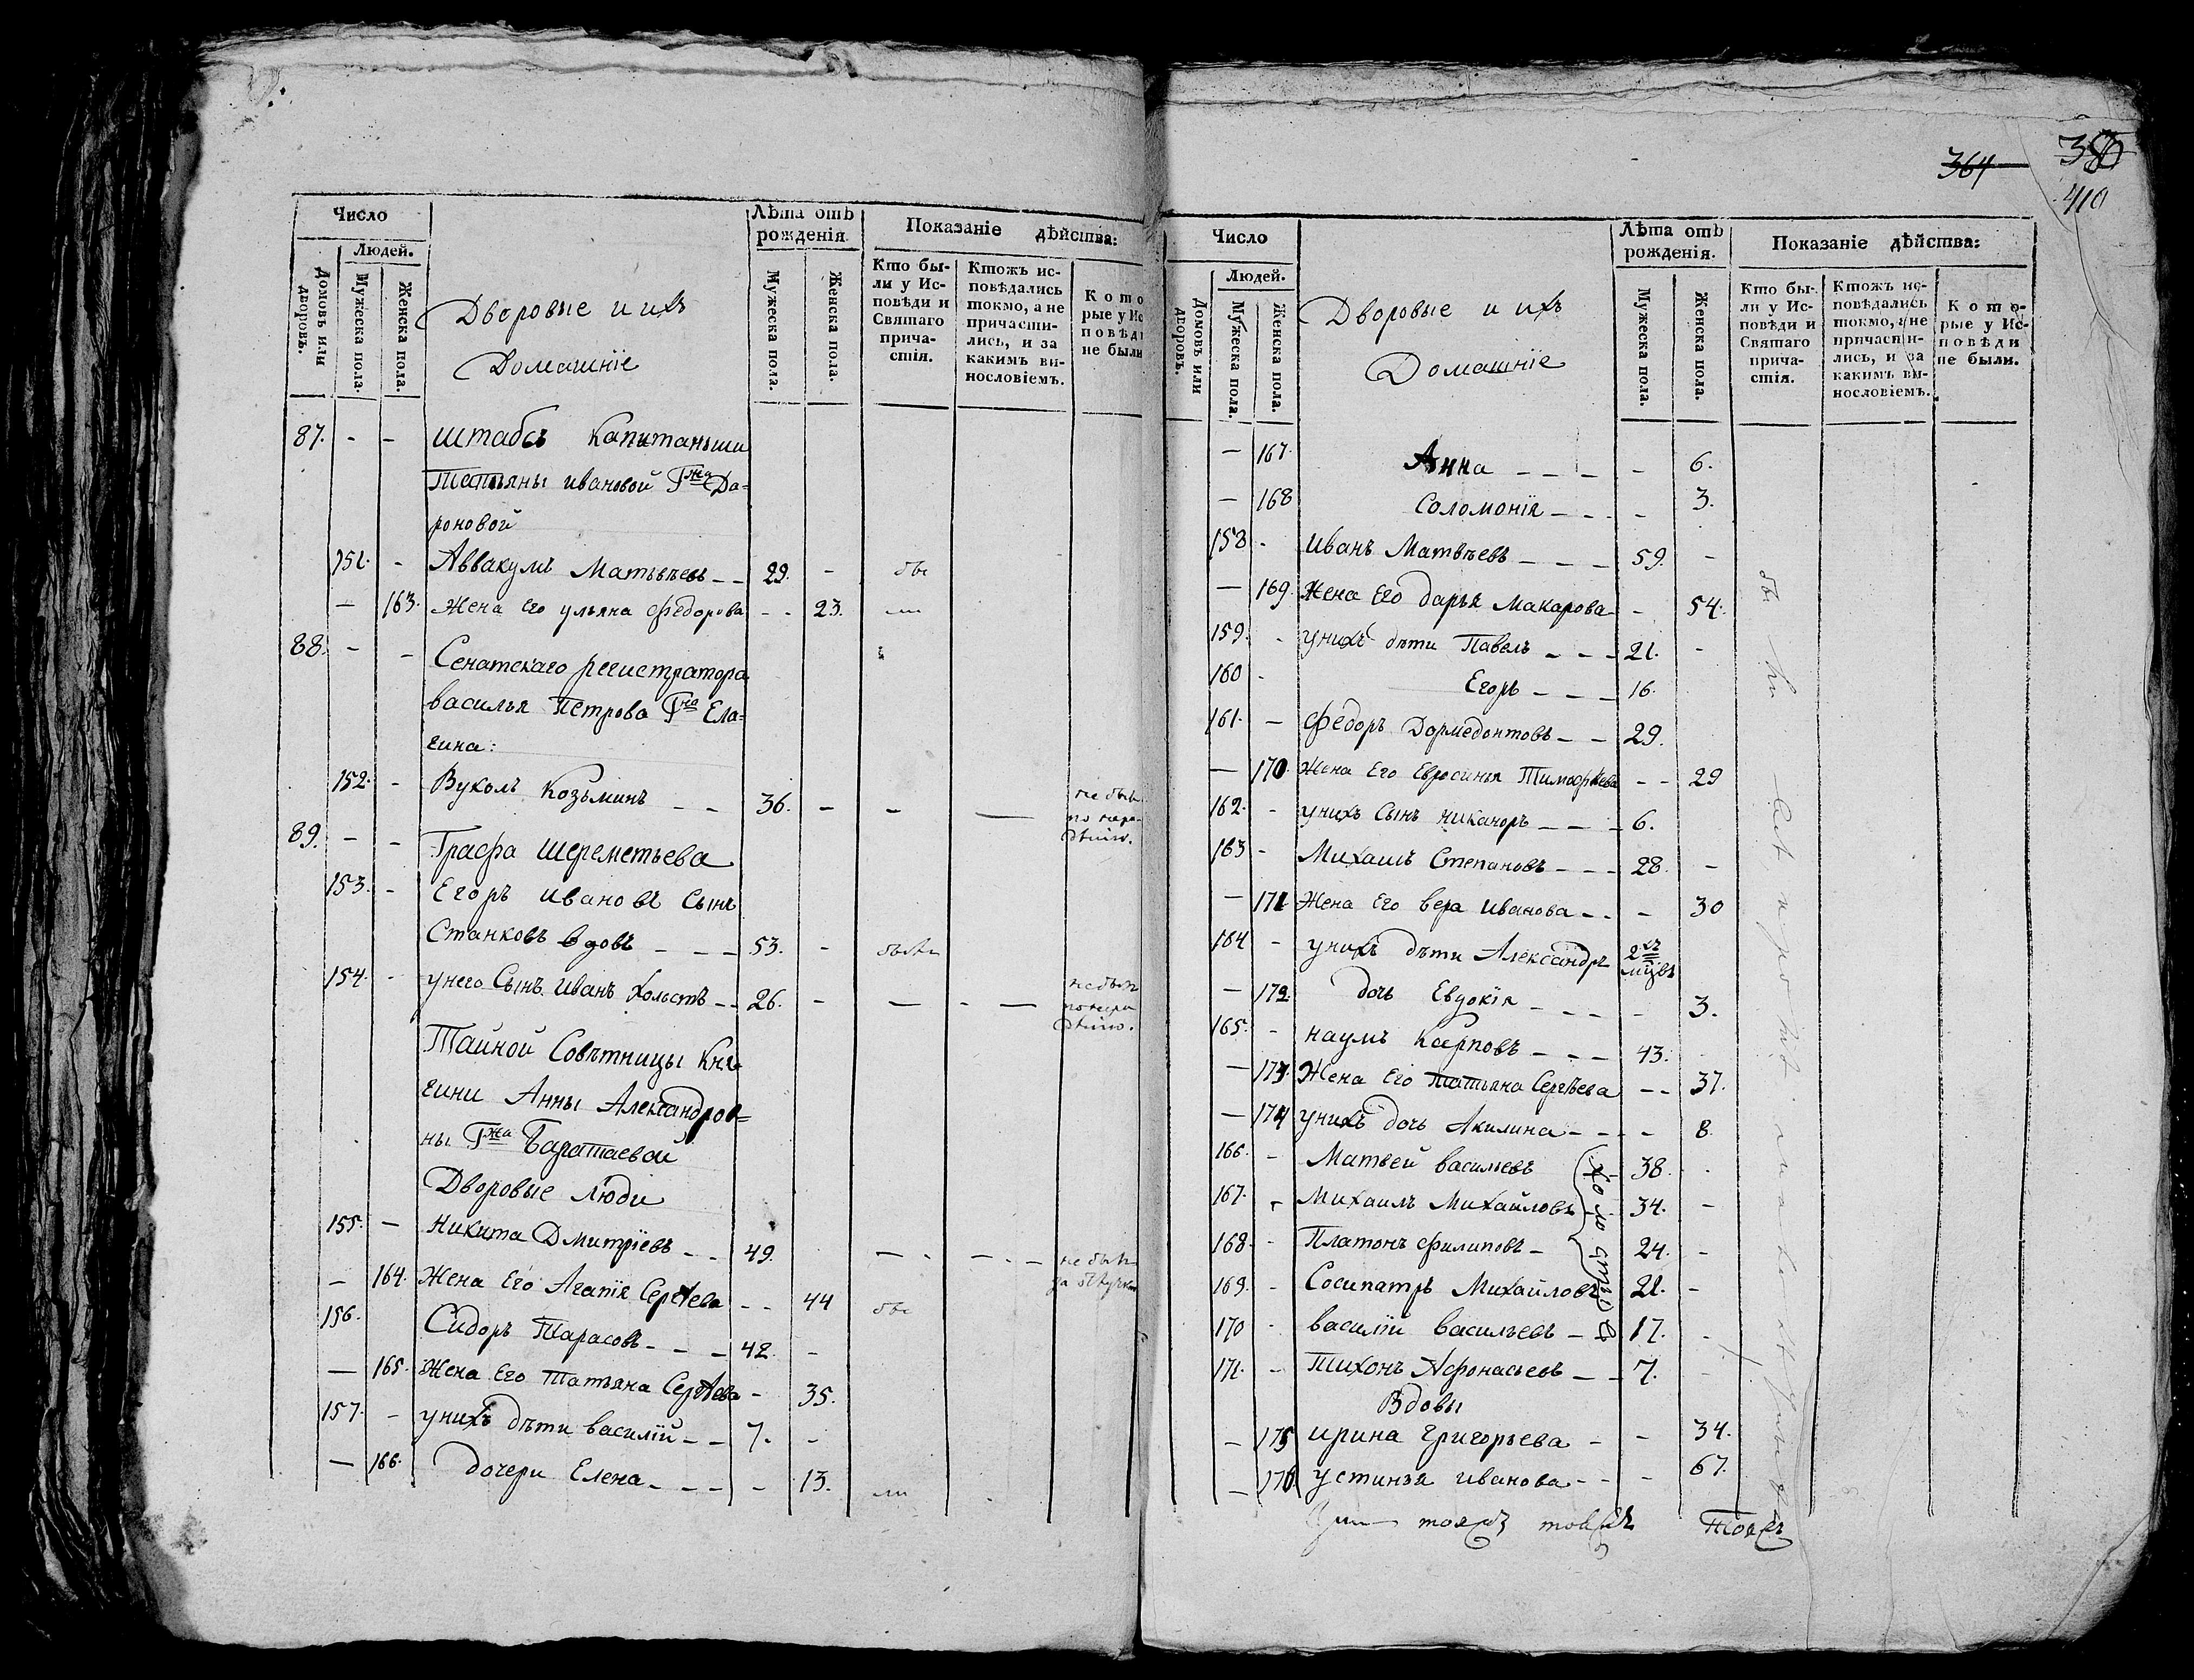 Число
Лѣта отъ рожденія.
Показаніе дѣйства:
Людей.
Домовъ или дворовъ.
Мужеска пола.
Женска пола.
Дворовые и ихъ
Домашніе
Мужеска пола.
Женска пола.
Кто бы-
ли у Ис-
повѣди и
Святаго
прича-
стія.
Ктожъ ис-
повѣдались
токмо, а не
причасти-
лись, и за
какимъ ви-
нословіемъ.
Кото
рые у Ис
повѣди
не были
87. - - штабсъ капитанши
Татьяны ивановой Гжа До-
роновой
151. - Аввакумъ Матвѣевъ - - 29. -
- 163. Жена Его ульяна федорова - - 23.
88. - - Сенатскаго регистратора
василья Петрова Гна Ела-
гина:
152. - Вуколъ Козьминъ - - 36. - - —
89. - - Графа шереметьева
153. - Егоръ ивановъ сынъ
Станковъ вдовъ - - - 53. - были
154. - унего Сынъ Иванъ холостъ - - 26. - — - —
Тайной Совѣтницы Кня-
гини Анны Александров=
ны Гжа Баратаевой
Дворовые люди
155. - Никита Дмитріевъ - - 49. не былъ
- 164. Жена Его Агапія Сергѣева - - 44
156. Сидоръ Тарасовъ - - - 42. -
- 165. Жена Его Татьяна Сергѣева - 35.
157. - унихъ дѣти василій - - 7. -
- 166. дочери Елена - - - - 13. ли
364 380
410
Число
Лѣта отъ рожденія.
Показаніе дѣйства:
Людей.
Домовъ или дворовъ.
Мужеска пола.
Женска пола.
Дворовые и ихъ
Домашніе
Мужеска пола.
Женска пола.
Кто бы-
ли у Ис-
повѣди и
Святаго
прича-
стія.
Ктожъ ис-
повѣдались
токмо, а не
причасти-
лись, и за
какимъ ви-
нословіемъ.
Кото-
рые у Ис-
повѣди
не были.
- 167. Анна - - - - 6.
- 168 Соломонія - - - - 3.
158 - иванъ Матвѣевъ - - - 59. -
- 169. Жена Его дарья Макарова - 54.
159. - унихъ дѣти Павелъ - - - 21. -
160 - Егоръ - - - 16.
161. - федоръ Дормедонтовъ - - 29.
- 170. Жена Его Евросинья Тимофѣева - - 29
162. - унихъ Сынъ никаноръ - - - 6.
163 - Михаилъ Степановъ - - - 28. -
- 171 Жена Его вера иванова - - - 30
164 - унихъ дѣти Александръ 2хъ
мцвъ
- 172. дочь Евдокія - - - - 3.
165. - наумъ Карповъ - - - 43.
- 173. Жена Его татьяна Сергѣева - - 37.
- 174 унихъ дочь Акилина - - - - 8.
166. - Матвей васильевъ 38. -
167. - Михаилъ Михайловъ 34. -
168. - Платонъ филиповъ - 24. -
169. - Сосипатръ Михайловъ 21. -
170 - василій васильевъ - 17. -
171. - Тихонъ Афонасьевъ - - 7. -
холостые
Вдовы
- 175 ирина григорьева - - 34.
- 176 устинья иванова - - - 67.